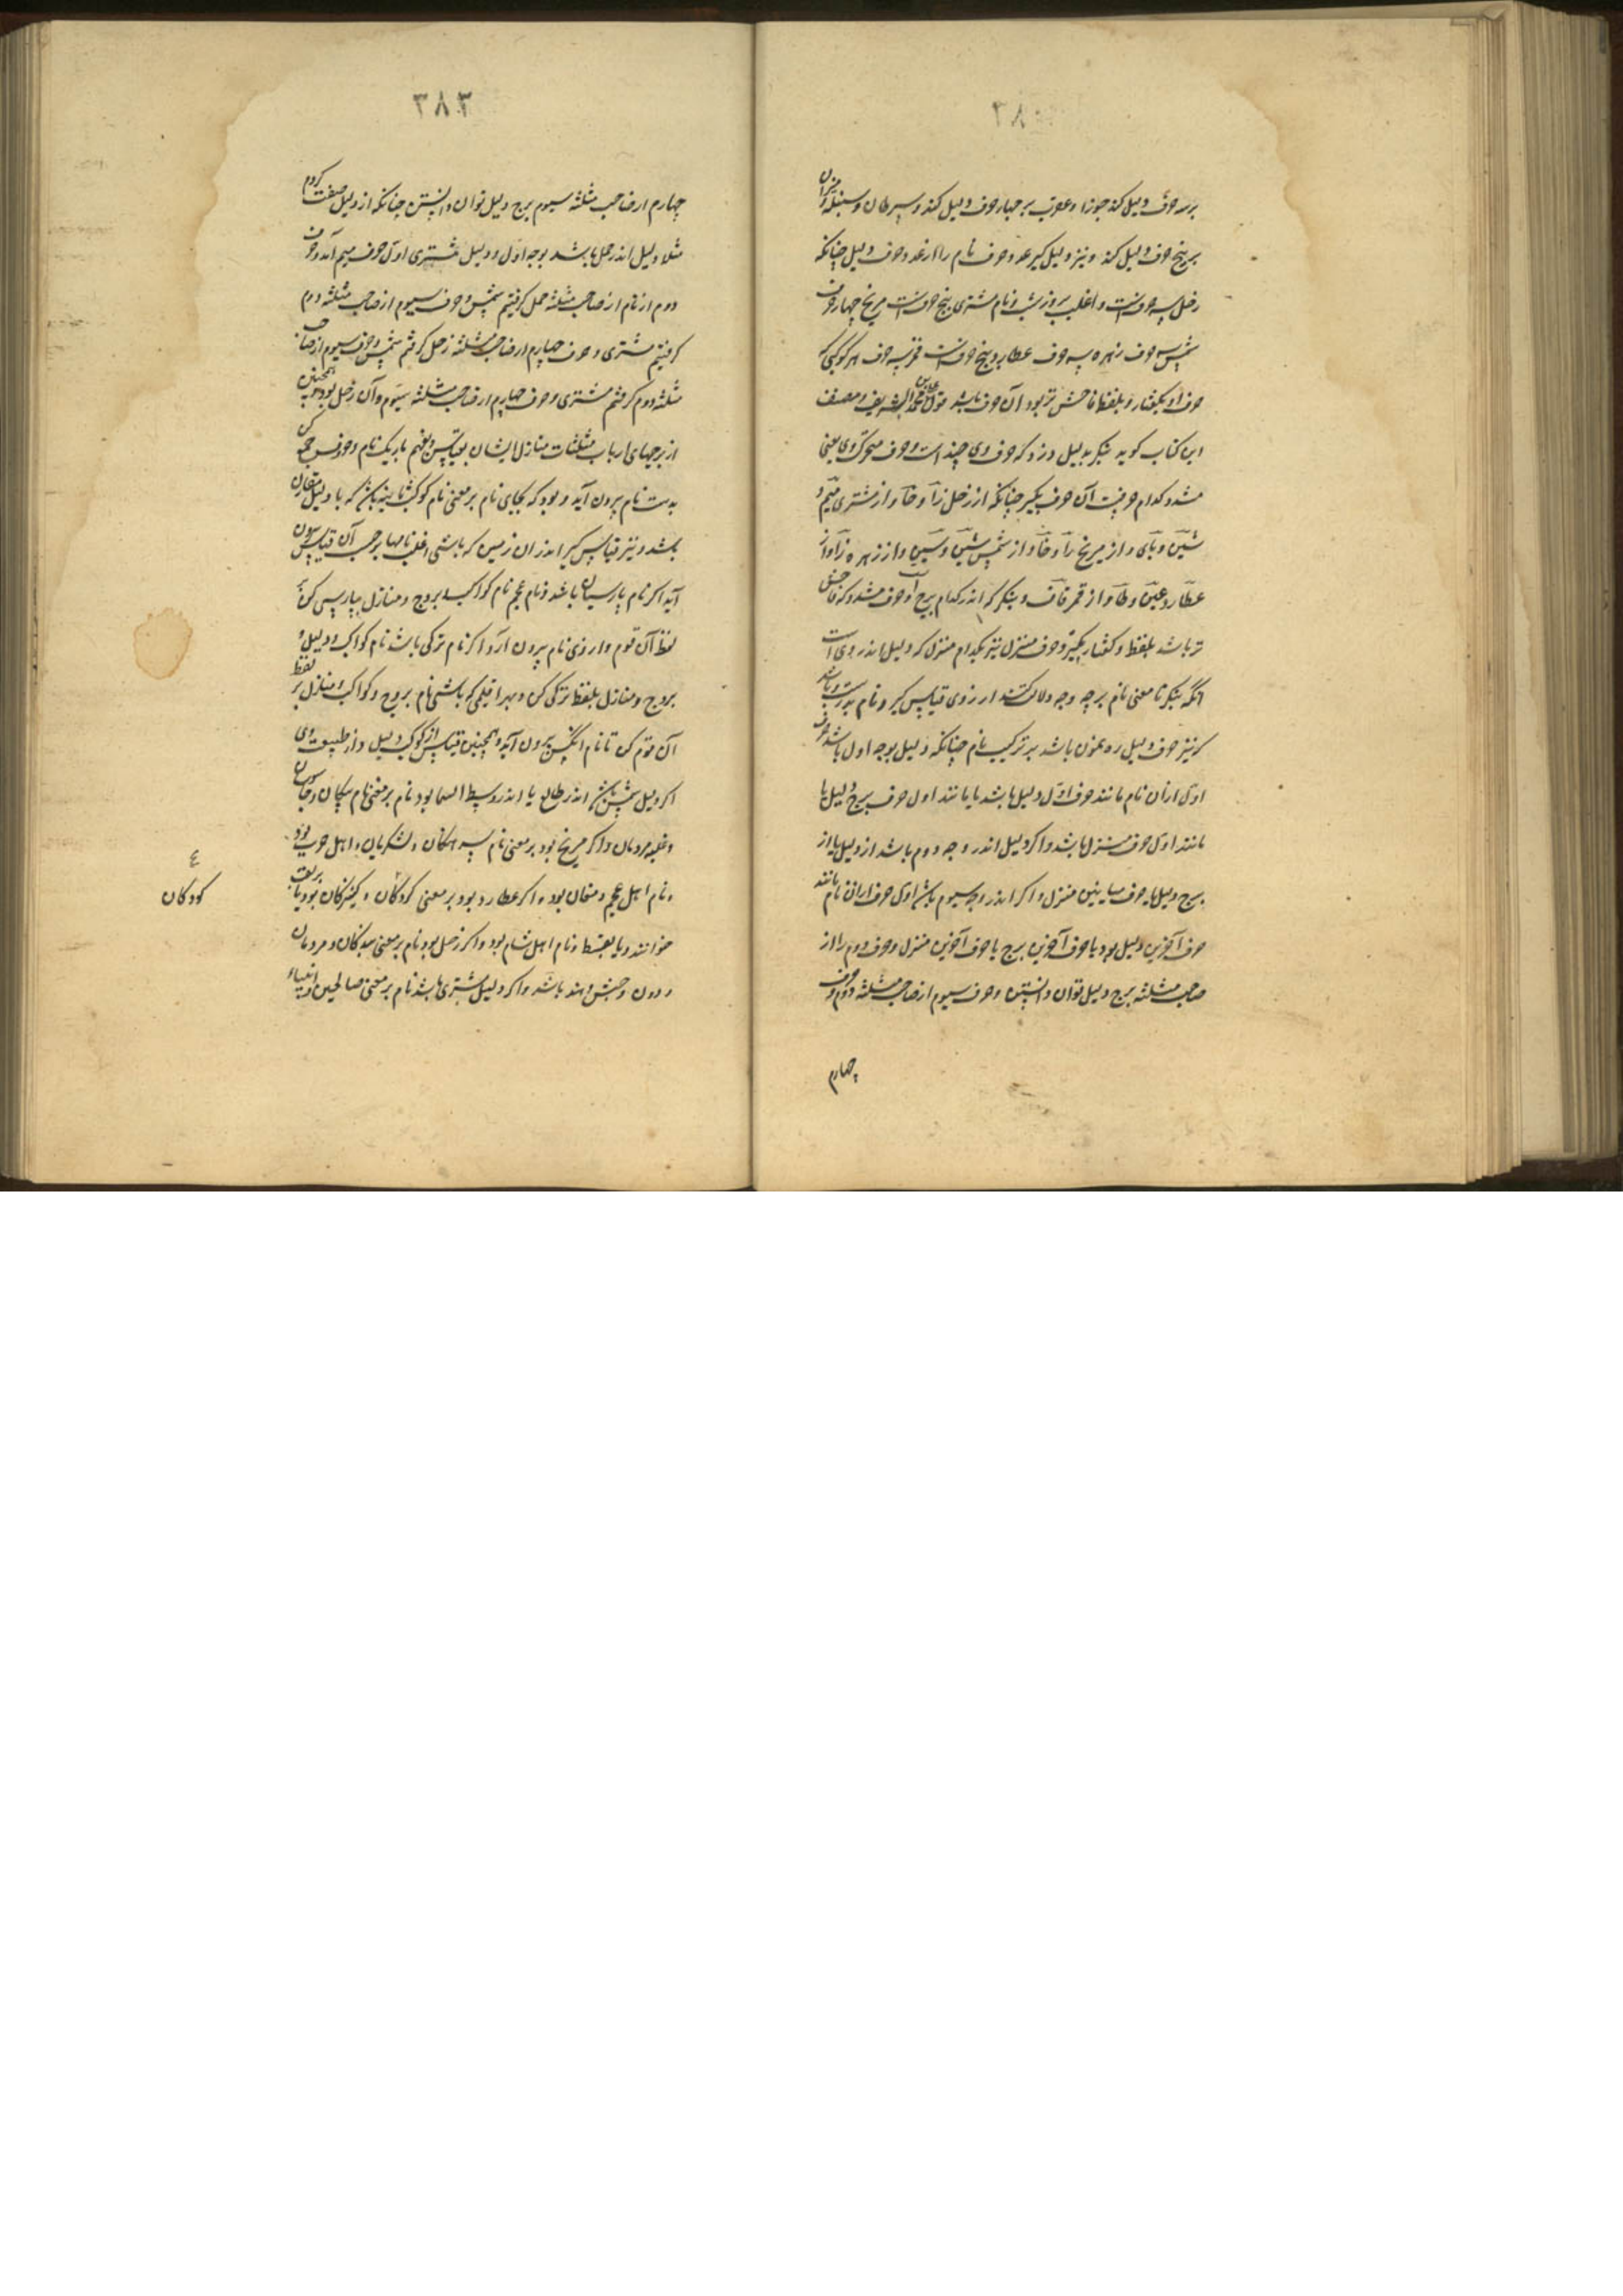 بر سه حرف دلیل کند جوزا و عقرب بر چهار حرف دلیل کند و سرطان و سنبله و میزان
بر پنج حرف دلیل کند و نیز دلیل گیر عدد حرف نام را از عدد حرف دلیل چنانکه
زحل سه حرفست و اغلب بر وزنست و نام مشتری پنج حرفست مریخ چهار حرف
شمس سه حرف زهره سه حرف عطارد پنج حرفست قمر سه حرف هر کوکبی که
حرف او بگفتار و بلفظ فاحش‌تر بود آن حرف باشد قول محمد الشریف و مصنف
این کتاب گوید بنگر بدلیل دزد که حرف وی چند است و حرف متحرک وی یعنی
مشدد کدام حرفست آن حرف بگیر چنانکه از زحل زا و حا و از مشتری میم و
شین و یای و از مریخ را و خا و از شمس شین و سین و از زهره زا و از
عطارد عین و طا و از قمر قاف و بنگر که اندر کدام برج است و حرف مشدد که فاحش
تر باشد بلفظ و گفتار بگیر و حرف منزل نیز بکدام منزل که دلیل اندر وی است
آنگه بنگر تا معنی نام بر چه وجه دلالت کند از روی قیاس گیر و نام بدرستی باشد
که نیز حرف دلیل رهنمون باشد بر ترکیب نام چنانکه دلیل بوجه اول باشد حرف
اول از آن نام مانند حرف اول دلیل باشد یا مانند اول حرف برج دلیل یا
مانند اول حرف منزل باشد و اگر دلیل اندر وجه دوم باشد از دلیل یا از
برج دلیل یا حرف میانین منزل و اگر اندر وجه سیوم باشد اول حرف از آن نام مانند
حرف آخرین دلیل بود یا حرف آخرین برج یا حرف آخرین منزل و حرف دوم را از
صاحب مثلثه برج دلیل توان دانستن و حرف سیوم از صاحب مثلثه دوم و حرف
چهارم
۳۸۳
چهارم از صاحب مثلثه سیوم برج دلیل توان دانستن چنانکه از دلیل صفت کردم
مثلا دلیل اندر حمل باشد بوجه اول و دلیل مشتری اول حرف میم آمد و حرف
دوم از نام از صاحب مثلثه حمل گرفتیم شمس و حرف سیوم از صاحب مثلثه دوم
گرفتیم مشتری و حرف چهارم از صاحب مثلثه زحل گرفتم شمس و حرف سیوم از صاحب
مثلثه دوم گرفتم مشتری و حرف چهارم از صاحب مثلثه سیوم و آن زحل بود همچنین
از برجهای ارباب مثلثات منازل ایشان بقیاس و بفهم باریک نام و حروفش جمع کن
بدست نام بیرون آید و بود که بجای نام بر معنی نام کوکب باشد که با دلیل مقارن
باشد و نیز قیاس گیر اندر ان زمین که باشی اغلب نامها بر حسب آن قیاس بیرون
آید اگر نام پارسیان باشد و نام عجم نام کواکب و بروج و منازل بپارسی کن
لفظ آن قوم و از وی نام بیرون آر و اگر نام ترکی باشد نام کواکب و دلیل و
بروج و منازل بلفظ ترکی کن و بهر اقلیمی که باشی نام بروج و کواکب و منازل بر لفظ
آن قوم کن تا نام آنکس بیرون آید و همچنین قیاس از کوکب دلیل و از طبیعت وی
اگر دلیل شمس باشد اندر طالع یا اندر وسط السما بود نام بر معنی نام ملکان و
و غلبه مردمان و اگر مریخ بود بر معنی نام سرهنگان و لشکریان و اهل حرب بود
و نام اهل عجم و مغان بود و اگر عطارد بود بر معنی کودکان و کنیزکان بود یا بر لقب
خوانند و یا نام اهل شام بود و اگر زحل بود نام بر معنی بندگان و مردمان
دون و حبش و هند باشد و اگر دلیل مشتری باشد نام بر معنی صالحین و انبیاء
ع
کودکان